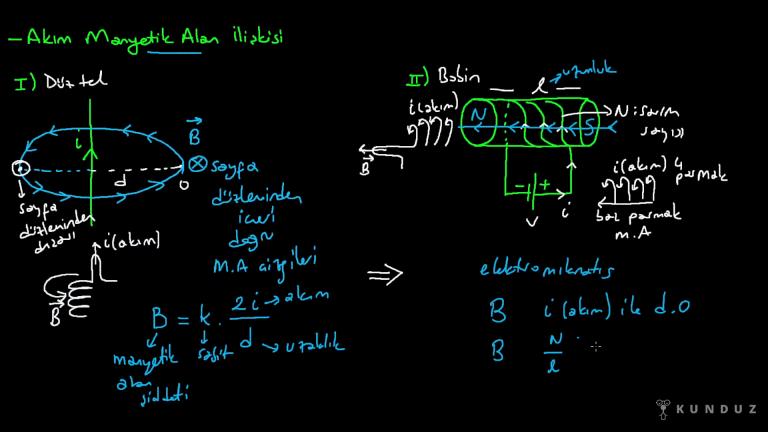 - Akım Manyetik Alan ilişkisi
I) Düz tel
i
B
d
O
sayfa
düzleminden
dışarı
sayfa
düzleminden
içeri
doğru
M.A çizgileri
i(akım)
B
B = k. 2i → akım
d → uzaklık
manyetik
alan
şiddeti
sabit
II) Bobin
l → uzunluk
i(akım)
N
S
N: sarım
sayısı
B
- +
i
V
i(akım) 4
parmak
baş parmak
M.A
⇒
B i(akım) ile d.O
B N
l
KUNDUZ